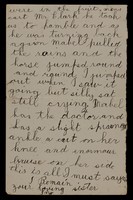 were in the first, miss
out. My black he took
us to handle and as
he was turning back
again Mabel pulled
the reins and the
horse jumped, round
and round, I jumped
out when I saw it
going but silly sat
still crying. Mabel
has the doctor and
has a slight sprain
able a cut on her
knee and enormous
bruise on her side
this is all I must say
I Remain
your loving sister